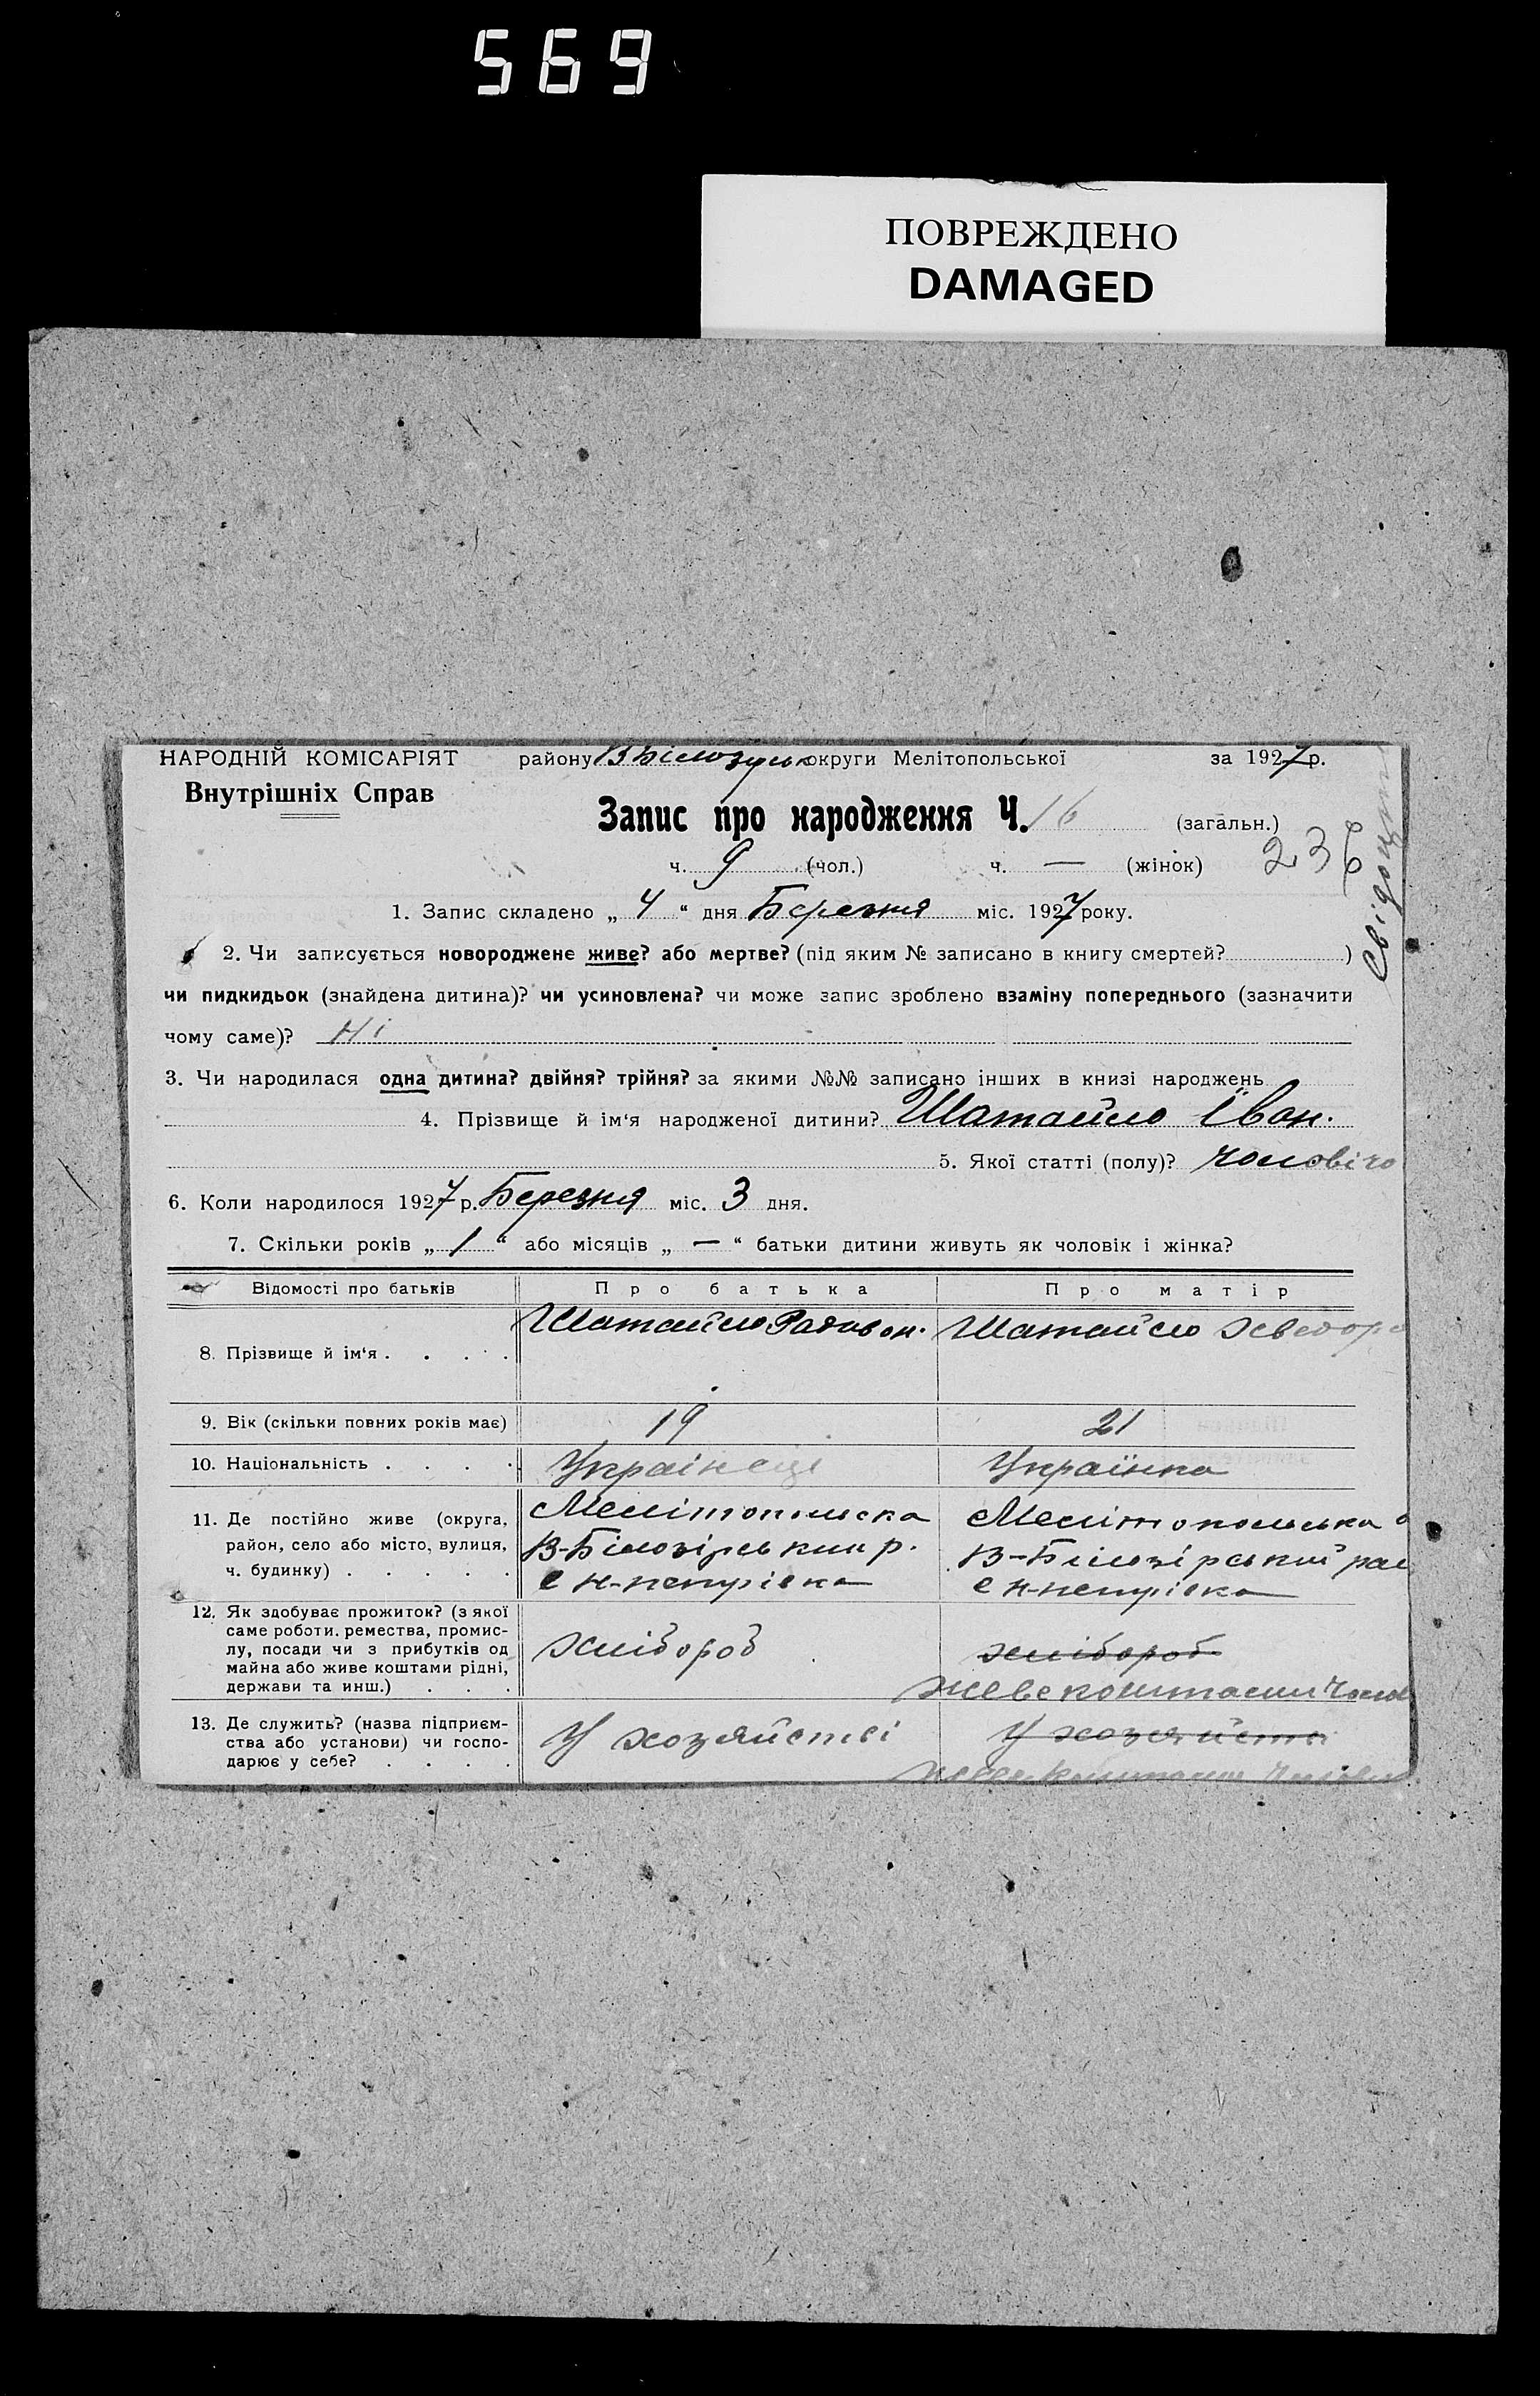 569
ПОВРЕЖДЕНО
DAMAGED
НАРОДНІЙ КОМІСАРІЯТ району округи Мелітопольської за 1927 р.
Внутрішніх Справ
Запис про народження Ч. 16 (загальн.)
ч. 9 (чол.) ч. — (жінок)
1. Запис складено „ 4 “ дня Березня міс. 1927 року.
2. Чи записується новороджене живе? або мертве? (під яким № записано в книгу смертей? )
чи пидкидьок (знайдена дитина)? чи усиновлена? чи може запис зроблено взаміну попереднього (зазначити
чому саме)? Ні
3. Чи народилася одна дитина? двійня? трійня? за якими №№ записано інших в книзі народжень
4. Прізвище й ім‘я народженої дитини? Шатайло Іван.
5. Якої статті (полу)? чоловічо
6. Коли народилося 1927 р. Березня міс. 3 дня.
7. Скільки років „ 1 “ або місяців „ — “ батьки дитини живуть як чоловік і жінка?
Відомості про батьків Про батька Про матір
8. Прізвище й ім‘я . . . . Шатайло Родивон. Шатайло
9. Вік (скільки повних років має) 19 21
10. Національність . . . . Українець Українка
11. Де постійно живе (округа, Мелітопольска Мелітопольська
район, село або місто, вулиця, В-Білозірський р. В-Білозірський
ч. будинку) . . . . . с Н-петрівка с Н-петрівка
12. Як здобуває прожиток? (з якої
саме роботи, ремества, промис-
лу, посади чи з прибутків од хлібороб хлібороб
майна або живе коштами рідні,
держави та инш.) . . . живе коштами
13. Де служить? (назва підприєм-
ства або установи) чи госпо- У хозяйстві У
дарює у себе? . . . .